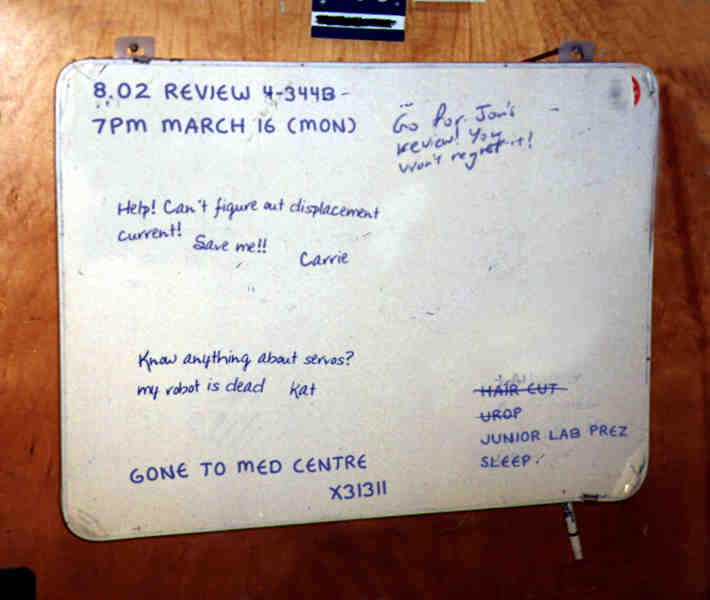 8.02 REVIEW 4-344B -
7PM MARCH 16 (MON)
Go for Jon's
review! You
won't regret it!
Help! Can't figure out displacement
current!
Save me!!
Carrie
Know anything about servos?
my robot is dead Kat
HAIR CUT
UROP
JUNIOR LAB PREZ
SLEEP!
GONE TO MED CENTRE
X31311